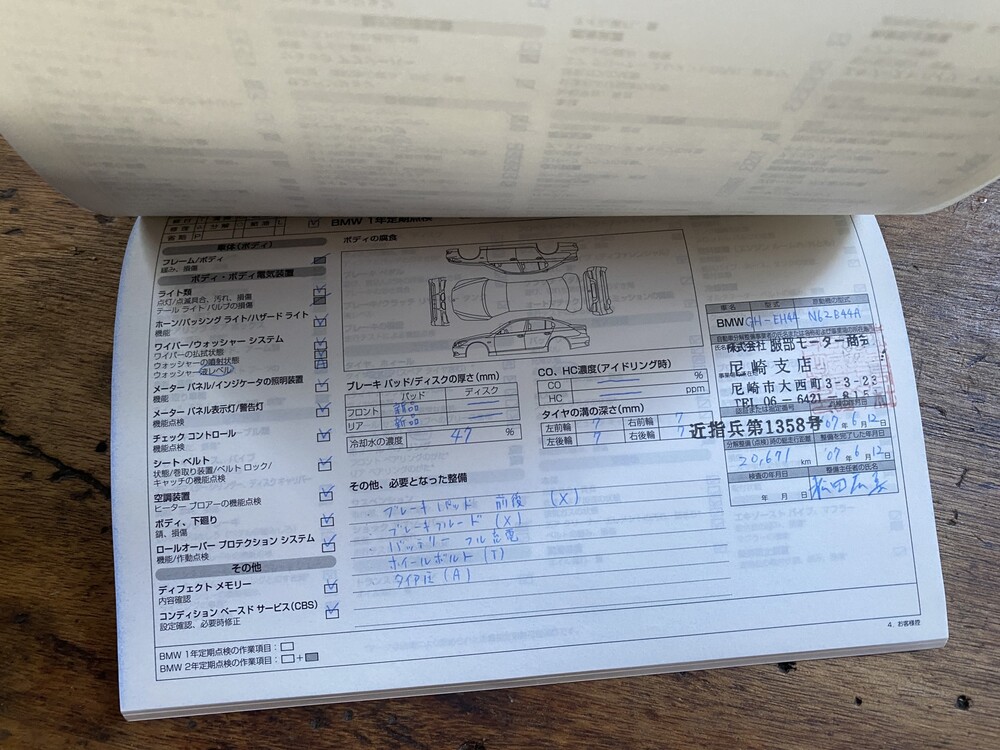 BMW 1年定期点検
車体(ボディ)
フレーム/ボディ
緩み、損傷
ボディ・ボディ電気装置
ライト類
点灯/点滅具合、汚れ、損傷
テール ライト バルブの損傷
ホーン/パッシング ライト/ハザード ライト
機能
ワイパー/ウォッシャー システム
ワイパーの払拭状態
ウォッシャーの噴射状態
ウォッシャー液レベル
メーター パネル/インジケータの照明装置
機能
メーター パネル表示灯/警告灯
機能点検
チェック コントロール
機能点検
シート ベルト
状態/巻取り装置/ベルト ロック/
キャッチの機能点検
空調装置
ヒーター ブロアーの機能点検
ボディ、下廻り
錆、損傷
ロールオーバー プロテクション システム
機能/作動点検
その他
ディフェクト メモリー
内容確認
コンディション ベースド サービス(CBS)
設定確認、必要時修正
BMW 1年定期点検の作業項目:
BMW 2年定期点検の作業項目: +
ボディの腐食
ブレーキ パッド/ディスクの厚さ(mm)
パッド ディスク
フロント 新品
リア 新品
冷却水の濃度 47 %
CO、HC濃度(アイドリング時)
CO %
HC ppm
タイヤの溝の深さ(mm)
左前輪 7 右前輪 7
左後輪 7 右後輪 7
その他、必要となった整備
ブレーキパッド 前後 (X)
ブレーキフルード (X)
バッテリー フル充電
ホイールボルト (T)
タイヤ圧 (A)
車名 型式 原動機の型式
BMW GH-EH44 N62B44A
株式会社 服部モーター商会
尼崎支店
尼崎市大西町3-3-23
TEL 06-6421-815
近指兵第1358号
'07年6月12日
分解整備(点検)時の総走行距離 整備を完了した年月日
20,671 km '07年6月12日
検査の年月日 整備主任者の氏名
年 月 日
4. お客様控